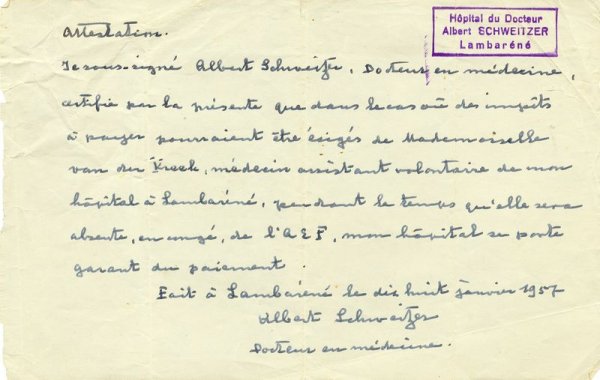 Attestation.
Hôpital du Docteur
Albert SCHWEITZER
Lambaréné
Je sous-signé Albert Schweitzer, Docteur en médecine,
certifie par la présente que dans le cas où des impôts
à payer pourraient être éxigés de Mademoiselle
van der Kreek, médecin assistant volontaire de mon
hôpital à Lambaréné, pendant le temps qu'elle sera
absente, en congé, de l'A E F, mon hôpital se porte
garant du paiement.
Fait à Lambaréné le dix huit janvier 1957
Albert Schweitzer
Docteur en médecine.